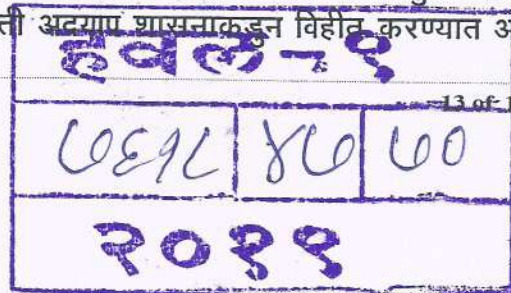 ती अद्याप शासनाकडुन विहीत करण्यात अ
हवल-१
13 of 1
७६१८ ४७ ७०
२०११